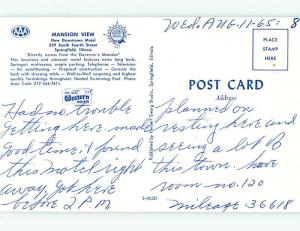 Wed. Aug-11-65: 8
AAA
MANSION VIEW
New Downtown Motel
529 South Fourth Street
Springfield, Illinois
"Directly across from the Governor's Mansion"
This luxurious and pleasant motel features extra long beds,
Springair mattresses, ample parking, Television —
Air conditioning — Fireproof construction — Ceramic tile
bath with dressing table — Wall-to-Wall carpeting and highest
quality furnishings throughout. Heated Swimming Pool. Phone
Area Code 217-544-7411
Western
Had no trouble
getting here, made
good time, found
this motel right
away, got here
before 2 P.M.
S-45321
PLACE
STAMP
HERE
POST CARD
Address
planned on
resting here and
seeing a lot of
this town. have
room no. 120
mileage 36618